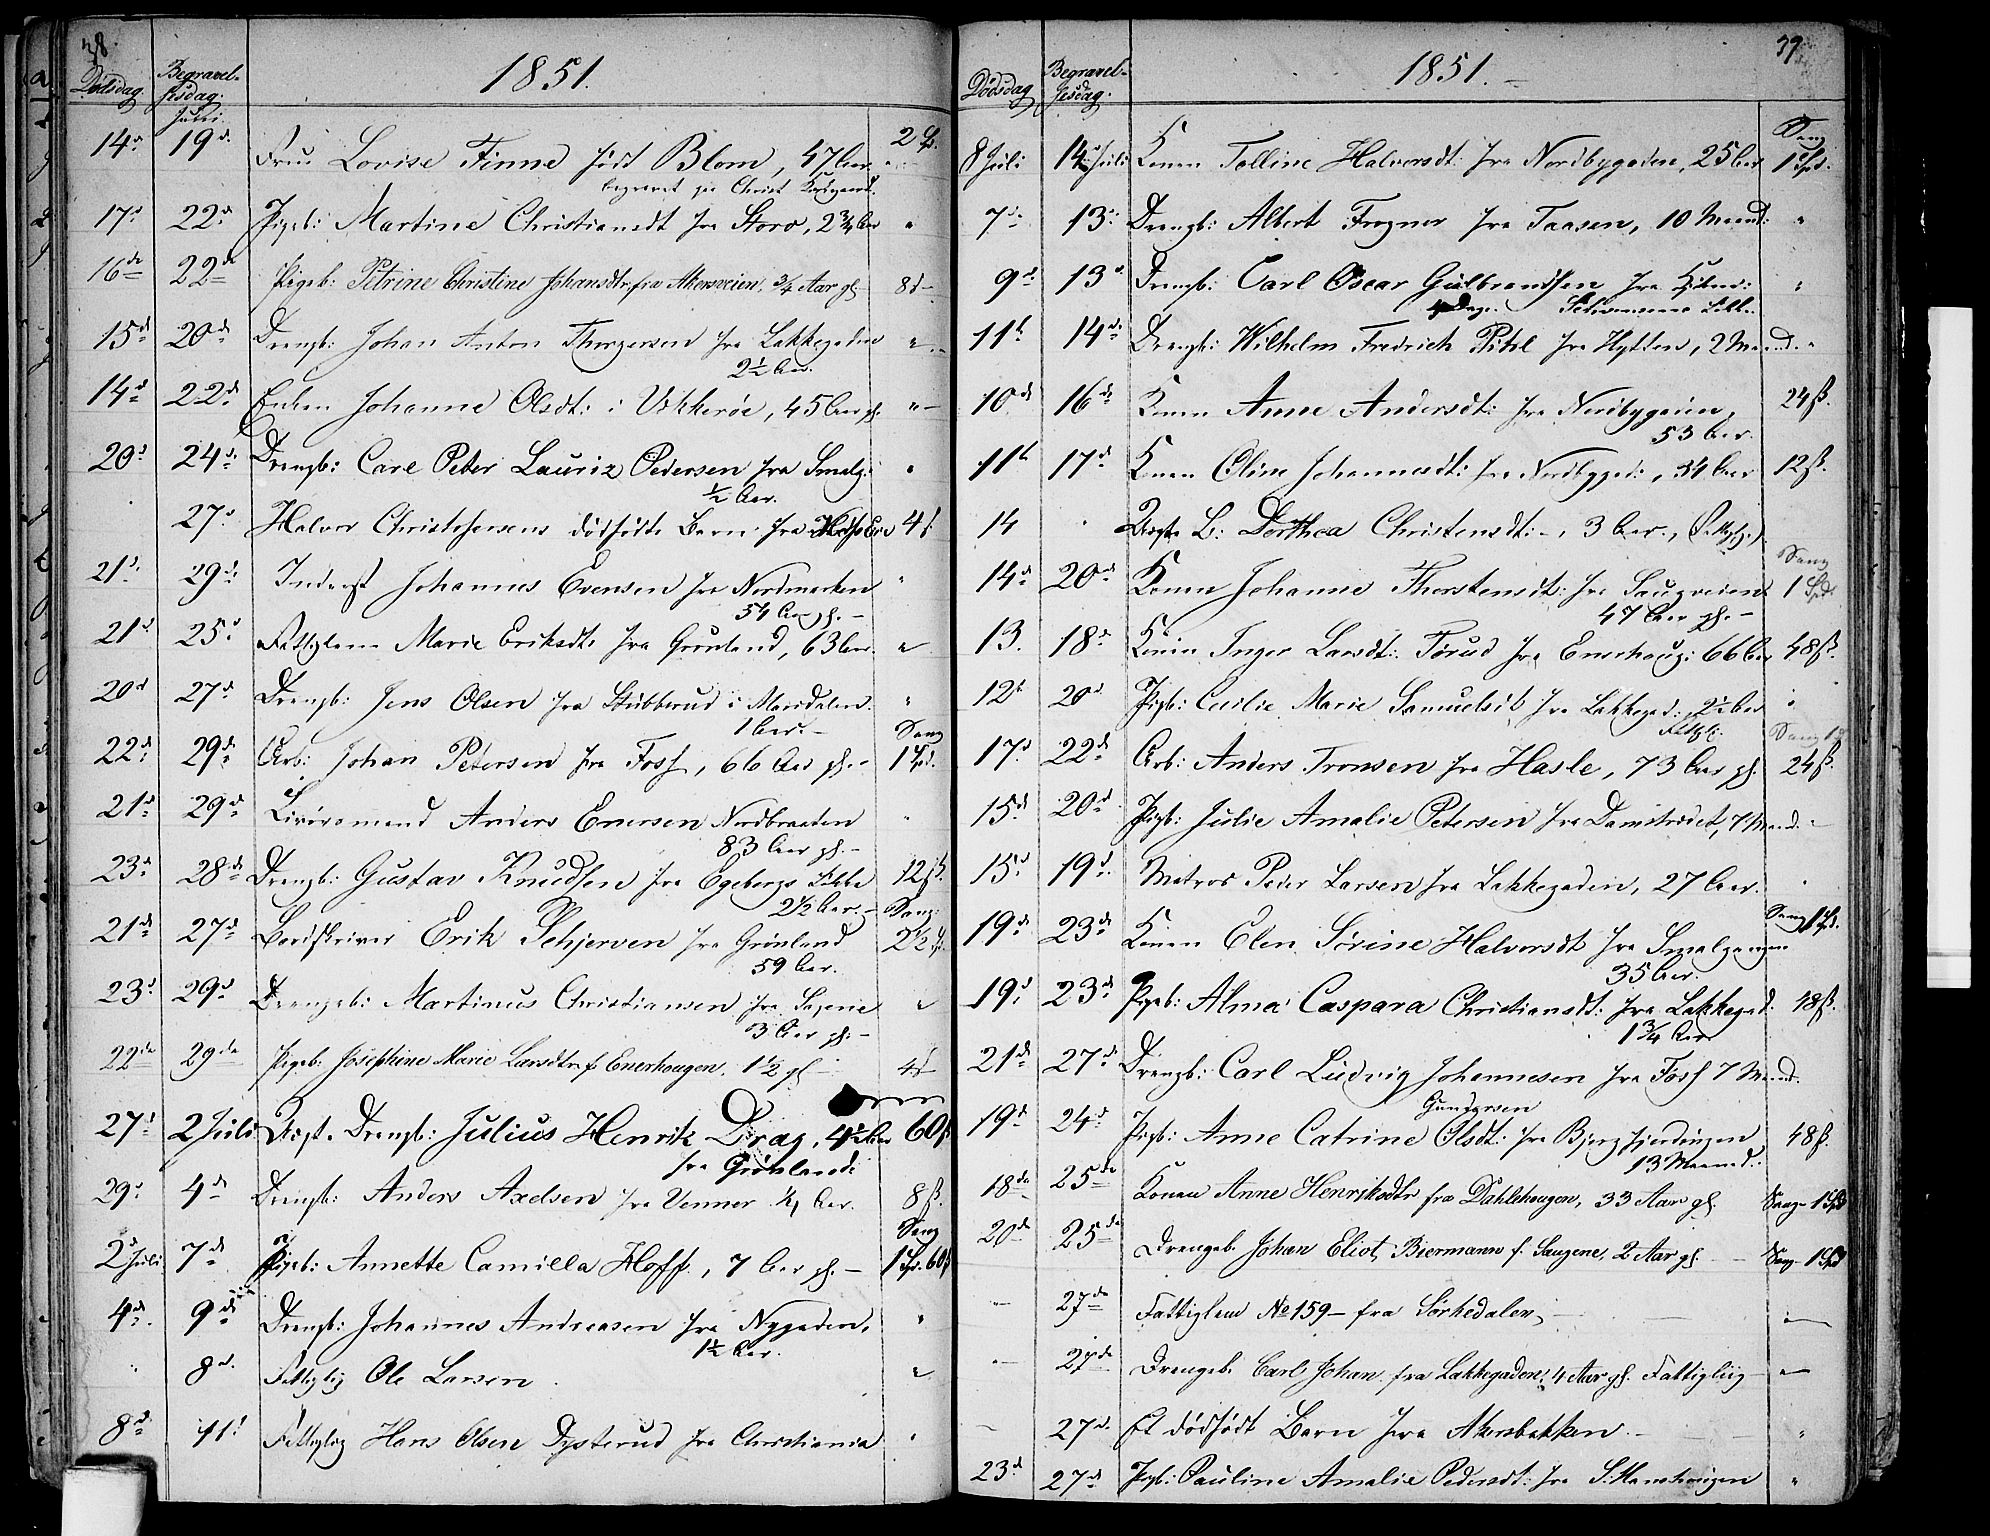 38.
Dødsdag. Begravelsesdag. 1851.
Juni
14d 19d. Frue Lovise Finne født Blom, 47 Aar 2 Sp.
begravet paa Christ Kirkgaard.
17d 22d Pigeb: Martine Christiansdt fra Storo, 2 3/4 Aar "
16de 22de Pigeb: Petrine Christine Johansdtr. fra Akersveien, 3/4 Aar gl. 8 s
15d 20d Drengb: Johan Anton Thorgersen fra Lakkegaden "
2 1/2 Aar.
14d 22d. Enken Johanne Olsdt: i Vækkerøe, 45 Aar gl. "
20d 24d. Drengb: Carl Peter Lauriz Pedersen fra Smalg: "
1/2 Aar.
27d Halvor Christophersens dødfødte Barn fra 4 s
21d. 29d. Inderst Johannes Evensen fra Nordmarken "
54 Aar gl. –
21d 25d Fattiglem Marie Eriksdt. fra Grønland, 63 Aar. "
20d 27d Drengb: Jens Olsen fra Stubberud i Maridalen. "
1 Aar. – Sang
22d. 29d. Arb: Johan Petersen fra Foss, 66 Aar gl. – 1 Spd.
21d 29d Livøremand Anders Enersen Nordbraaten "
83 Aar gl. –
23d 28d Drengb: Gustav Knudsen fra Egebergs Løkke 12 ß.
2 1/2 Aar. – Sang.
21d 27d Bordskriver Erik Schjerven fra Grønland 2 1/2 Sp.
59 Aar.
23d 29d Drengeb: Martinus Christiansen fra Sagene "
3 Aar gl. –
22de 29de Pigeb: Josephine Marie Larsdtr. f. Enerhougen. 1 1/2 gl 4 s
27d 2 Juli Uægte Drengb: Julius Henrik Drag, 4 1/2 Aar 60 ß
fra Grønland:
29d 4d Drengb: Anders Axelsen fra Venner 1/4 Aar. 8 ß.
Sang
2d Juli 7d Pigeb: Annette Camilla Hoff, 7 Aar gl. – 1 Sp. 60 ß
4d. 9d Drengb: Johannes Andreasen fra Nygaden, "
1 1/2 Aar.
" 8d. Fattiglig Ole Larsen. "
8d 11d Fattiglig Hans Olsen Dysterud fra Christiania "
39.
Dødsdag Begravelsesdag. 1851. –
Sang
8 Juli 14d Juli Konen Tolline Halvorsdt: fra Nordbygaden, 25 Aar 1 Spd.
7d 13d Drengb: Albert Frogner fra Taasen, 10 Maand: "
9d. 13d Drengb: Carl Oscar Gulbrandsen fra "
4 Dage. Schwensens Løkke
11te 14d Drengb: Wilhelm Fredrich Pihl fra Hytten, 2 Maaned. "
10d 16d. Konen Anne Andersdt: fra Nordbygaden, 24 ß.
53 Aar.
11te 17d Konen Oline Johannesdt: fra Nordbygad:, 54 Aar 12 ß.
14 " Uægte B: Dorthea Christensdt: –, 3 Aar.,
Sang
14d 20d Konen Johanne Thorstensdt: fra Saugveien 1 Spd
47 Aar gl. –
13. 18d Konen Inger Larsdt: Forud fra Enerhoug: 66 Aar 48 ß.
12te 20d Pigb: Cecilie Marie Samuelsdt fra Lakkegad: 2 1/2 Aar "
Fattigl: Sang 1 Sp
17d 22d Arb: Anders Tronsen fra Hasle, 73 Aar gl. 24 ß.
15d 20d. Pigb: Julie Amalie Petersen fra Damstrædet, 7 Maand. "
15d 19d. Matros Peder Larsen fra Lakkegaden, 27 Aar. "
19d 23d Konen Elen Sørine Halvorsdt fra Smalgangen Sang 1 Sp.
35 Aar.
19d 23d Pigeb: Alma Caspara Christiansdt: fra Lakkegad: 48 ß.
1 3/4 Aar
21d 27d Drengb: Carl Ludvig Johannesen fra Foss 7 Maand.
Gundersen
19d 24d Pigb: Anne Catrine Olsdt: fra Bjergfjerdingen 48 ß.
13 Maaned.
18de 25de Konen Anne Henriksdtr fra Dahlehougen, 33 Aar gl. Sang 1 Spd
20de 25de Drengeb. Johan Eliot Biermann f. Saugene, 2 Aar gl. – Sang – 1 Spd
– 27de Fattiglem No 159 – fra Sørkedalen, "
– 27de Drengeb. Carl Johan fra Lakkegaden, 4 Aar gl. Fattigliig "
– 27d. Et dødfødt Barn fra Akersbakken. "
23d 27d Pigb: Pauline Amalie Pedersdt: fra St. Hanshougen "